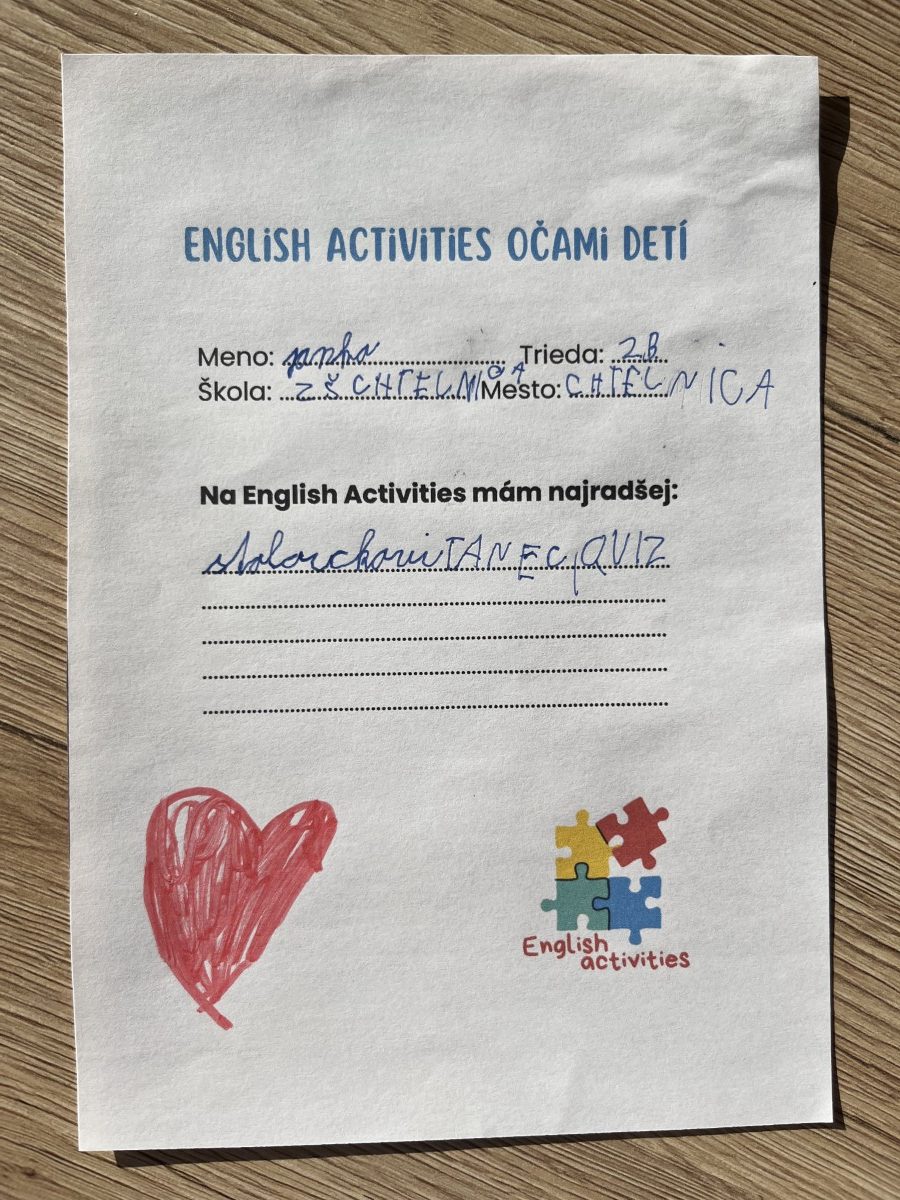 ENGLISH ACTIVITIES OČAMI DETÍ
Meno: janka Trieda: 2B
Škola: ZŠ CHTELNICA Mesto: CHTELNICA
Na English Activities mám najradšej:
stolarckovi TANEC, QUIZ
English
activities